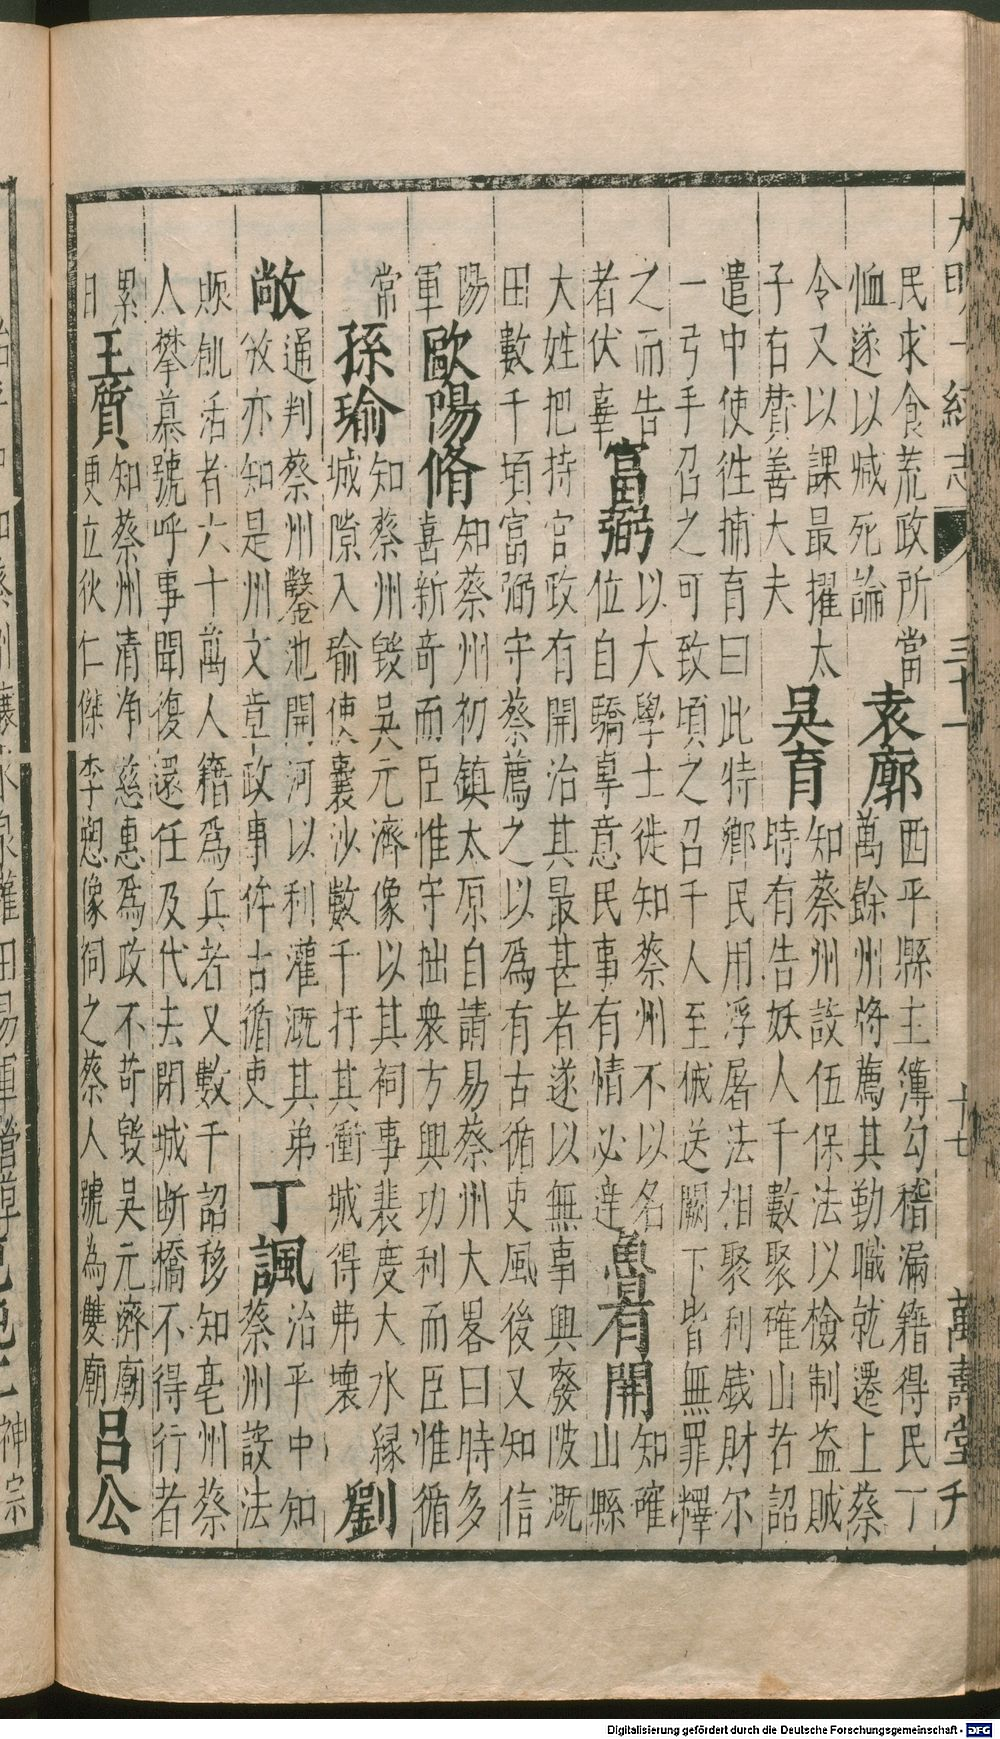 大明一統志 三十一 十七 萬壽堂刊
民求食荒政所當
恤遂以減死論
袁廓
西平縣主簿勾稽漏籍得民丁
萬餘州將薦其勤職就遷上蔡
令又以課最擢太
子右贊善大夫
吳育
知蔡州設伍保法以檢制盜賊
時有告妖人千數聚確山者詔
遣中使徃捕育曰此特鄉民用浮屠法相聚利錢財尔
一弓手召之可致頃之召千人至械送闕下皆無罪釋
之而告
者伏辜
富弼
以大學士徙知蔡州不以名
位自驕卓意民事有情必達
魯有開
知確
山縣
大姓把持官政有開治其最甚者遂以無事興廢陂溉
田數千頃富弼守蔡薦之以為有古循吏風後又知信
陽
軍
歐陽脩
知蔡州初鎮太原自請易蔡州大畧曰時多
喜新奇而臣惟守拙衆方興功利而臣惟循
常
孫瑜
知蔡州毀吳元濟像以其祠事裴度大水緣
城隙入瑜使囊沙數千扞其衝城得弗壞
劉
敞
通判蔡州鑿池開河以利灌溉其弟
攽亦知是州文章政事侔古循吏
丁諷
治平中知
蔡州設法
賑飢活者六十萬人籍為兵者又數千詔移知亳州蔡
人攀慕號呼事聞復還任及代去閉城斷橋不得行者
累
日
王質
知蔡州清净慈惠為政不苛毀吳元濟廟
更立狄仁傑李愬像祠之蔡人號為雙廟
呂公
神宗
Digitalisierung gefördert durch die Deutsche Forschungsgemeinschaft - DFG